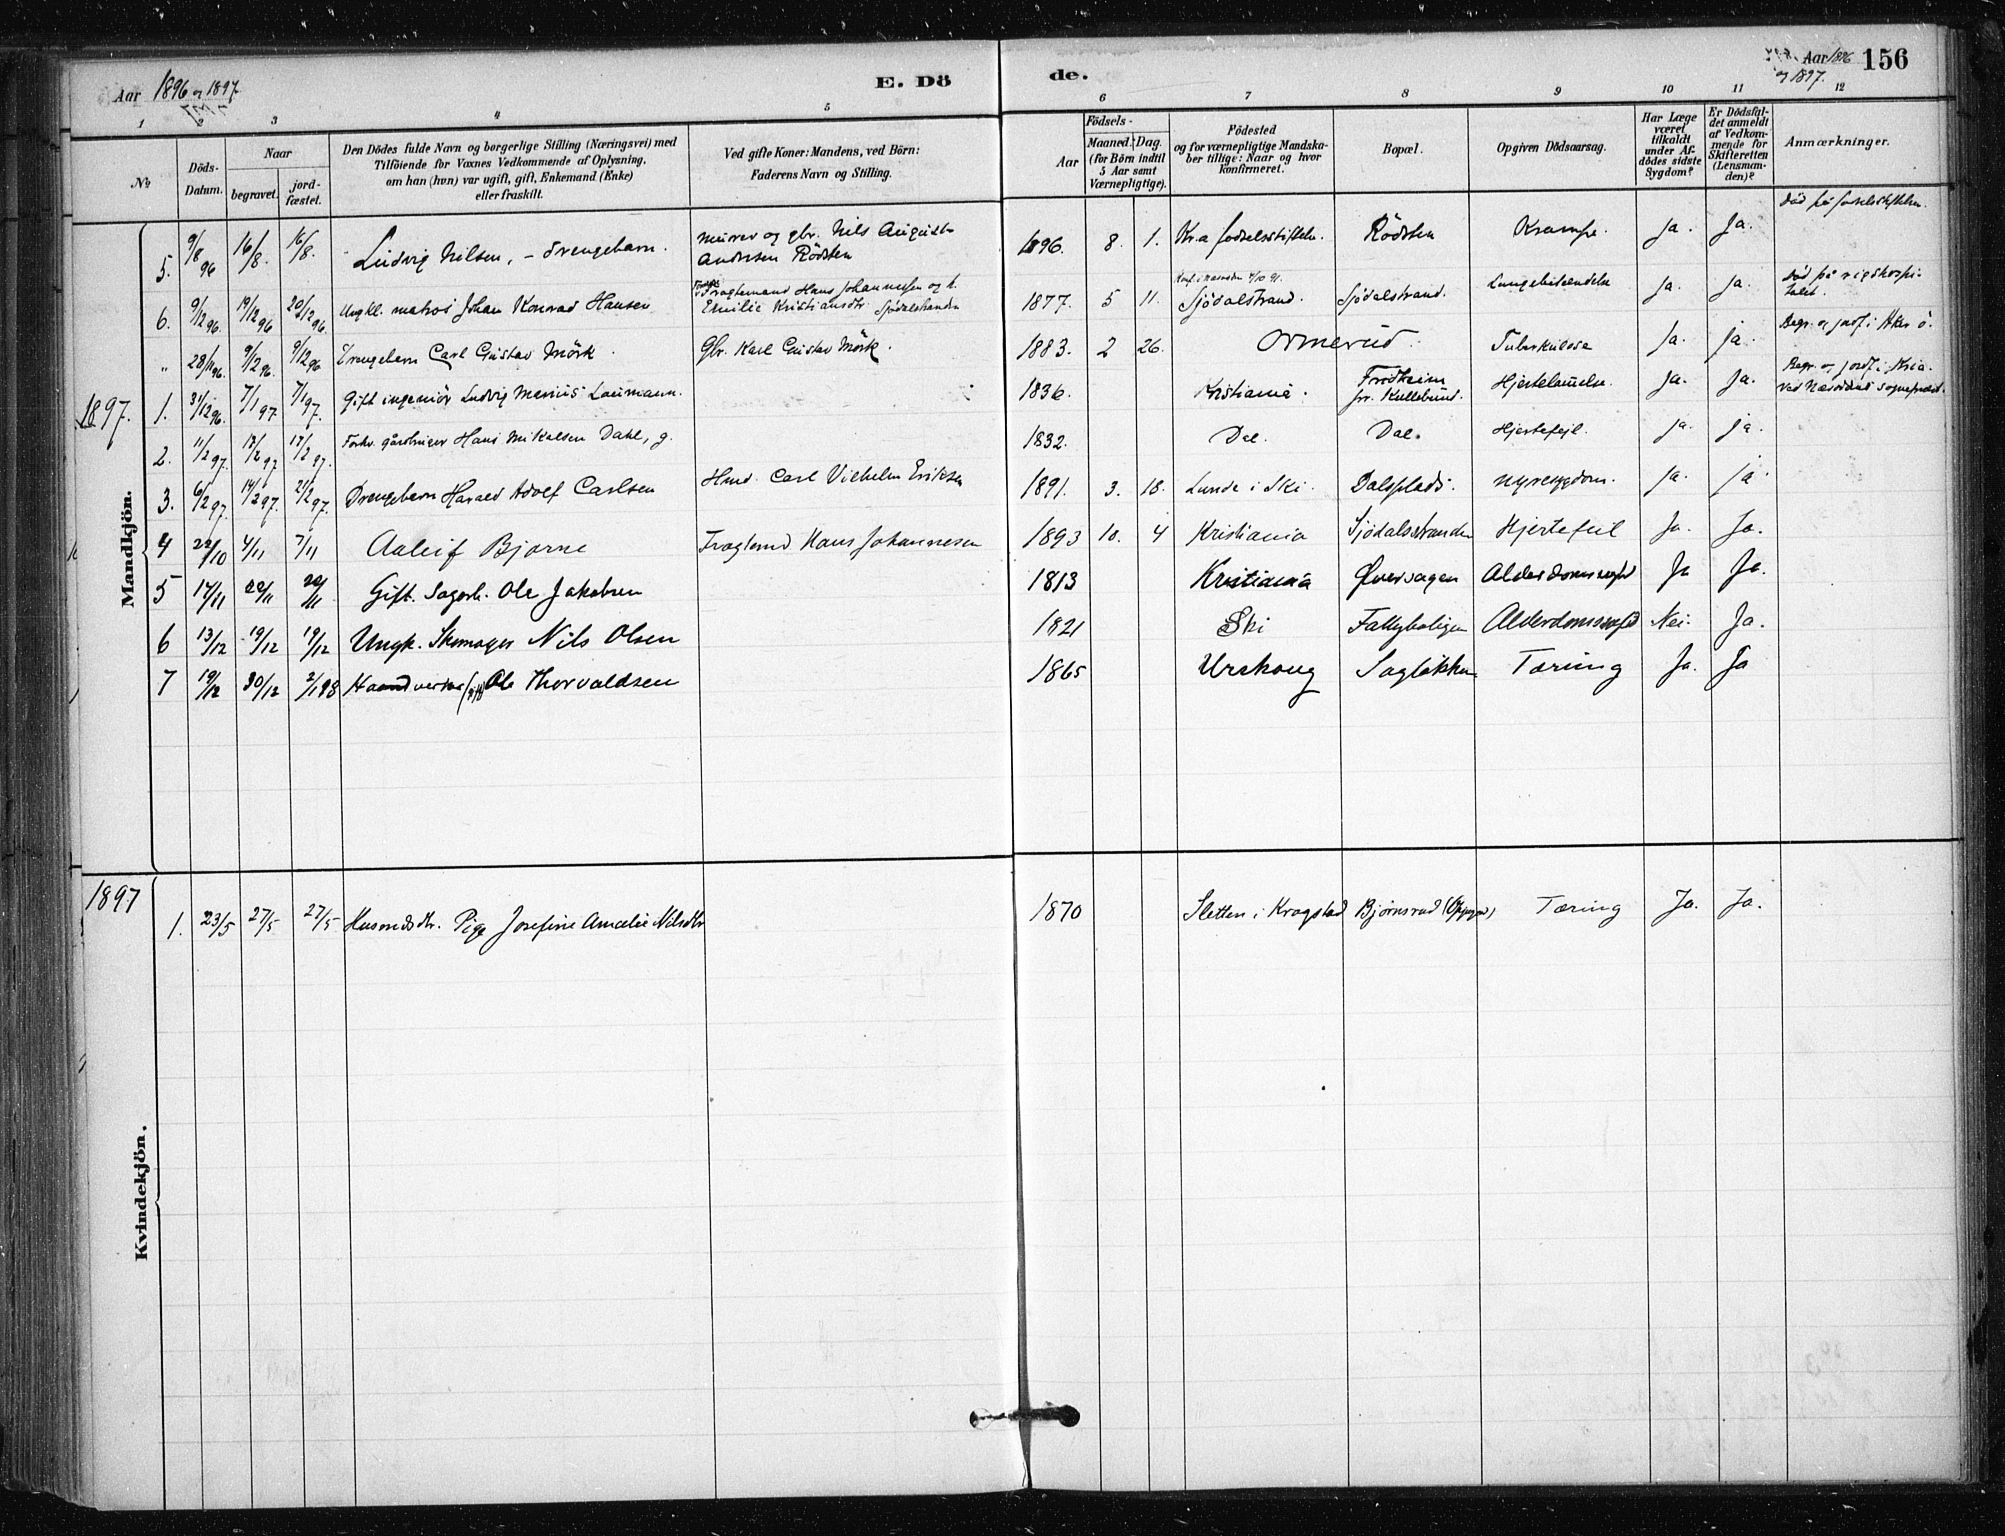 Aar 1896 og 1897. E. Dö
de. Aar 1896 og 1897. 156
1 2 3 4 5 6 7 8 9 10 11 12
No
Döds-Datum.
Naar
begravet.
jord-fæstet.
Den Dödes fulde Navn og borgerlige Stilling (Næringsvei) med
Tilföiende for Voxnes Vedkommende af Oplysning,
om han (hun) var ugift, gift, Enkemand (Enke)
eller fraskilt.
Ved gifte Koner: Mandens, ved Börn:
Faderens Navn og Stilling.
Födsels-
Aar
Maaned. Dag.
(for Börn indtil
5 Aar samt
Værnepligtige).
Födested
og for værnepligtige Mandska-
ber tillige: Naar og hvor
konfirmeret.
Bopæl.
Opgiven Dödsaarsag.
Har Læge
været
tilkaldt
under Af-
dödes sidste
Sygdom?
Er Dödsfal-
det anmeldt
af Vedkom-
mende for
Skifteretten
(Lensman-
den)?
Anmærkninger.
Mandkjön.
5. 9/8 96 16/8. 16/8. Ludvig Nilsen, - drengebarn. murer og gbr. Nils August Andersen Rödsten 1896. 8. 1. Kr.a fødselsstiftelse. Rödsten Krampe. ja. Ja. död på fødselsstiftelsen.
6. 9/12 96. 19/12 96 20/12 96. Ungkl. matros Johan Konrad Hansen Fragtemand Hans Johannessen og h. Emilie Kristiansdtr Sjödalstranden 1877. 5 11. Sjödalstrand. Sjödalstrand. Lungebetændelse ja. ja. död på rigshospitalet.
" 28/11 96. 9/12 96. 9/12 96 Drengebarn Carl Gustav Mörk. Gbr. Karl Gustav Mörk. 1883. 2 26. Ormerud. Tuberkulose ja. ja. Begr. og jordf. i Aker ö.
1897. 1. 31/12 96. 7/1 97 7/1 97. Gift ingeniör Ludvig Marius Laumann. 1836. Kristiania. Frodheim pr. Kullebund. Hjertelamelse. ja. ja. Begr. og jordf. i Kria. ved Næsoddens sognepræst.
2. 11/2 97. 17/2 97 17/2 97. Forhv. gårdbruger Hans Mikalsen Dahl, g. 1832. Dal. Dal. Hjertefejl. ja. ja.
3. 6/2 97. 14/2 97. 21/2 97. Drengebarn Harald Adolf Carlsen Hmd. Carl Vilhelm Eriksen 1891. 3. 18. Lunde i Ski. Dalsplads. nyresygdom. ja. ja.
4 22/10 4/11 7/11 Aaleif Bjarne Fragtemd Hans Johannesen 1893 10. 4 Kristiania Sjödalsstranden Hjertefeil Ja. Ja.
5 17/11 20/11 20/11 Gift. Sagarb. Ole Jakobsen 1813 Kristiania Øversagen Alderdomssvaghed Ja Ja.
6 13/12 19/12 19/12 Ungk. Skomager Nils Olsen 1821 Ski Fattigboligen Alderdomssvaghd Nei. Ja.
7 19/12 30/12 2/1 98 Haandverker (gift) Ole Thorvaldsen 1865 Urskoug Sagløkken Tæring Ja. Ja
Kvindekjön.
1897 1. 23/5 27/5 27/5 Husmdsdtr. Pige Josefine Amalie Nilsdtr 1870 Sletten i Kragstad Bjørnsrud (Oppegrd) Tæring Ja. Ja.